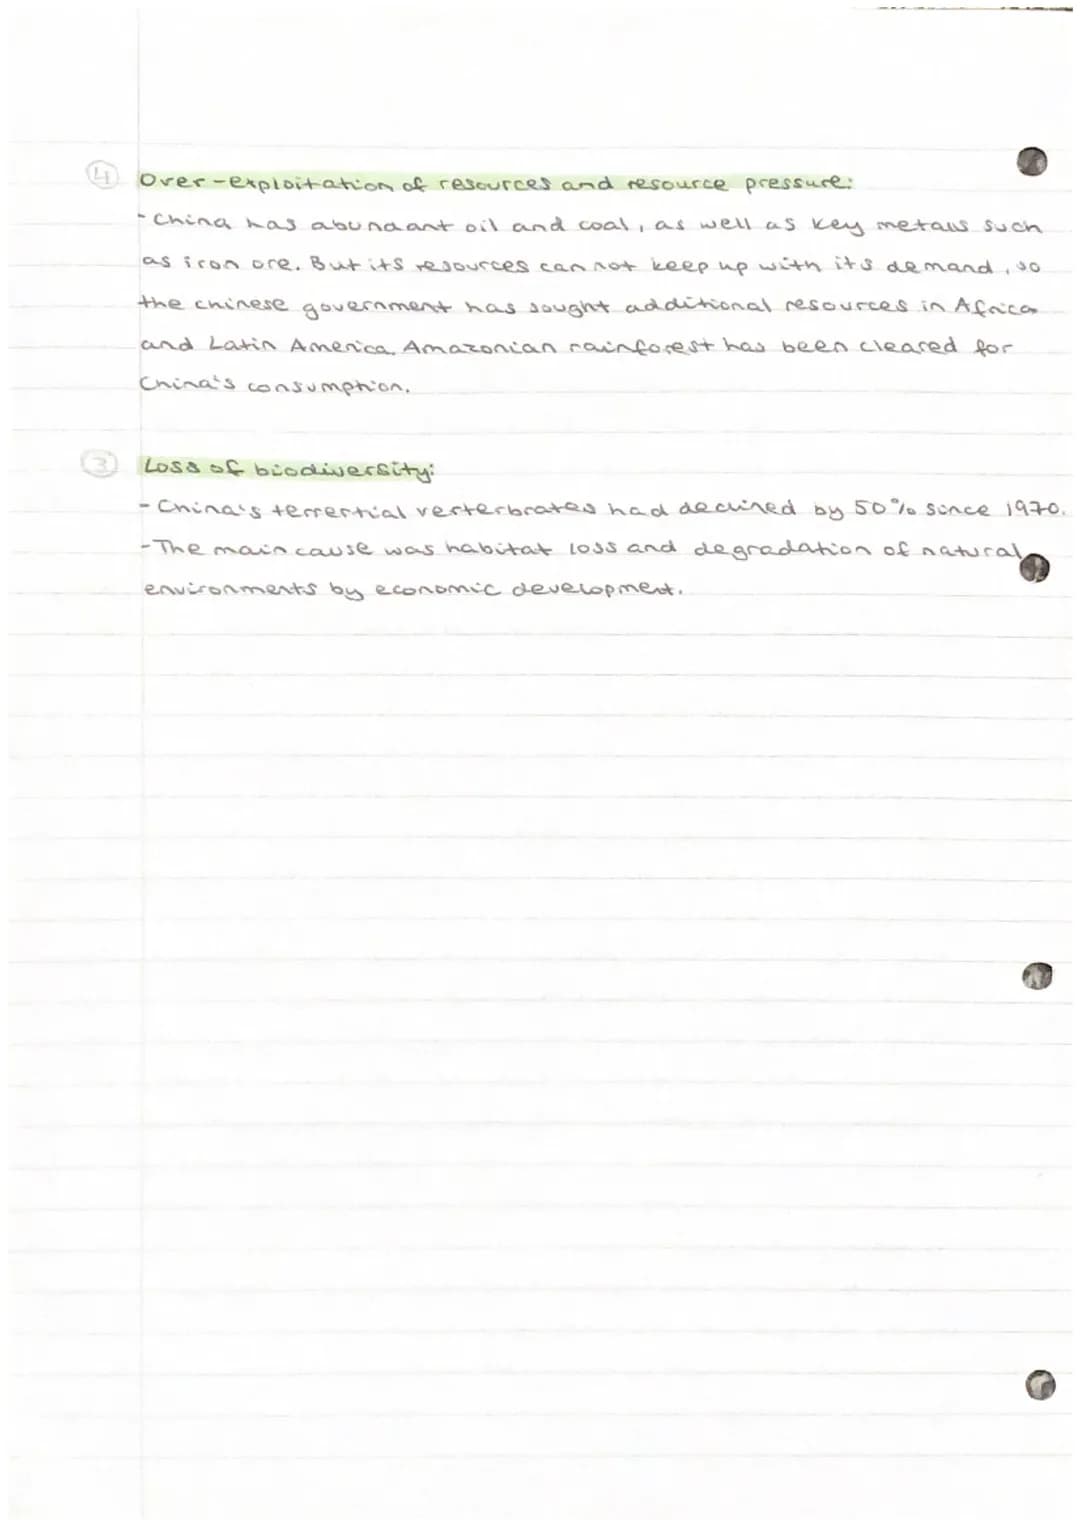 ④ Over-exploitation of resources and resource pressure:
- China has abundant oil and coal, as well as key metals such
as iron ore. But its resources cannot keep up with its demand, so
the chinese government has sought additional resources in Africa
and Latin America. Amazonian rainforest has been cleared for
China's consumption.
③ Loss of biodiversity:
- China's terrertial verterbrates had declined by 50% since 1970.
- The main cause was habitat loss and degradation of natural
environments by economic development.